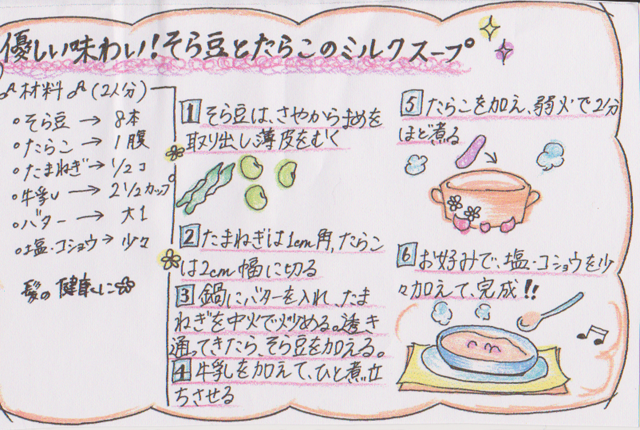 優しい味わい!そら豆とたらこのミルクスープ
材料(2人分)
そら豆→8本
たらこ→1腹
たまねぎ→1/2コ
牛乳→2 1/2カップ
バター→大1
塩・コショウ→少々
髪の健康に
1 そら豆は、さやからまめを
取り出し、薄皮をむく
2 たまねぎは1cm角,たらこ
は2cm幅に切る
3 鍋にバターを入れ、たま
ねぎを中火で炒める。透き
通ってきたら、そら豆を加える。
4 牛乳を加えて、ひと煮立
ちさせる
5 たらこを加え、弱火で2分
ほど煮る
6 お好みで、塩・コショウを少
々加えて、完成!!